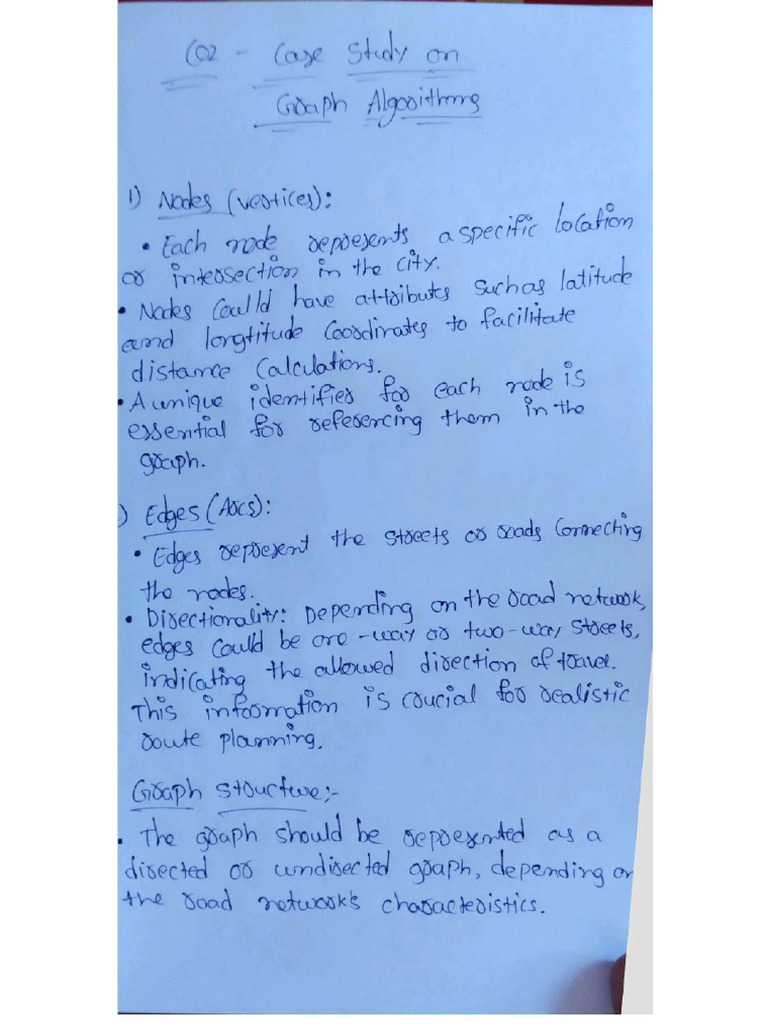 CO2 - Case Study on
Graph Algorithms
1) Nodes (vertices):
• Each node represents a specific location
or intersection in the city.
• Nodes Could have attributes such as latitude
and longtitude Coordinates to facilitate
distance Calculations.
• A unique identifier for each node is
essential for referencing them in the
graph.
) Edges (Arcs):
• Edges represent the streets or roads Connecting
the nodes.
• Directionality: Depending on the road network,
edges could be one-way or two-way streets,
indicating the allowed direction of travel.
This information is crucial for realistic
route planning.
Graph structure:-
• The graph should be represented as a
directed or undirected graph, depending on
the road network's characteristics.